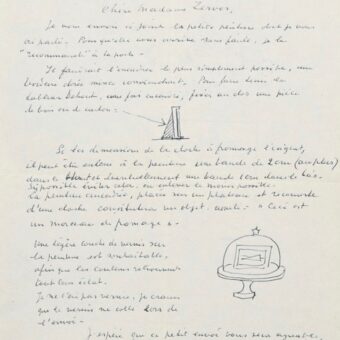 Chère Madame Zervos,
Je vous envoie ci-joint la petite peinture dont je vous
ai parlé. Pour qu'elle vous arrive sans faute, je la
"recommande" à la poste.
Il faudrait l'encadrer le plus simplement possible, une
très mince conviendrait. Pour faire tenir le
tableau debout, une fois encadré, fixer au dos une pièce
de bois ou de carton:
Si les dimensions de la cloche à fromage l'exigent,
on peut ôter autour à la peinture une bande de 2 cm (au plus)
dans le haut et éventuellement une bande 1 cm dans le bas.
Si possible éviter cela, en enlever le moins possible.
La peinture encadrée, placée sur un plateau et recouverte
d'une cloche constituera un objet intitulé: "Ceci est
un morceau de fromage".
Une légère couche de vernis sur
la peinture est souhaitable,
afin que les couleurs retrouvent
tout leur éclat.
Je ne l'ai pas vernie, je crains
que le vernis ne colle lors de
l'envoi.
J'espère que ce petit envoi vous sera agréable,